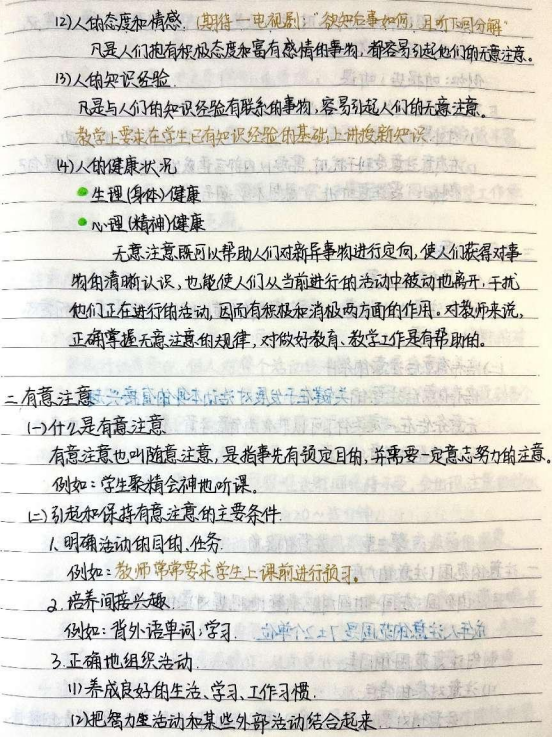 (2)人的态度和情感.(期待一电视剧:"欲知后事如何,且听下回分解"
凡是人们抱有积极态度和富有感情的事物,都容易引起他们的无意注意。
(3)人的知识经验.
凡是与人们的知识经验有联系的事物,容易引起人们的无意注意。
教学上要求在学生已有知识经验的基础上讲授新知识.
(4)人的健康状况
生理(身体)健康
心理(精神)健康
无意注意既可以帮助人们对新异事物进行定向,使人们获得对事
物的清晰认识,也能使人们从当前进行的活动中被动地离开,干扰
他们正在进行的活动,因而有积极和消极两方面的作用。对教师来说,
正确掌握无意注意的规律,对做好教育、教学工作是有帮助的。
二.有意注意
(一)什么是有意注意
有意注意也叫随意注意,是指事先有预定目的,并需要一定意志努力的注意。
例如:学生聚精会神地听课。
(二)引起和保持有意注意的主要条件.
1.明确活动的目的、任务.
例如:教师常常要求学生上课前进行预习。
2.培养间接兴趣
例如:背外语单词;学习.
3.正确地组织活动.
(1)养成良好的生活、学习、工作习惯.
(2)把智力性活动和某些外部活动结合起来.